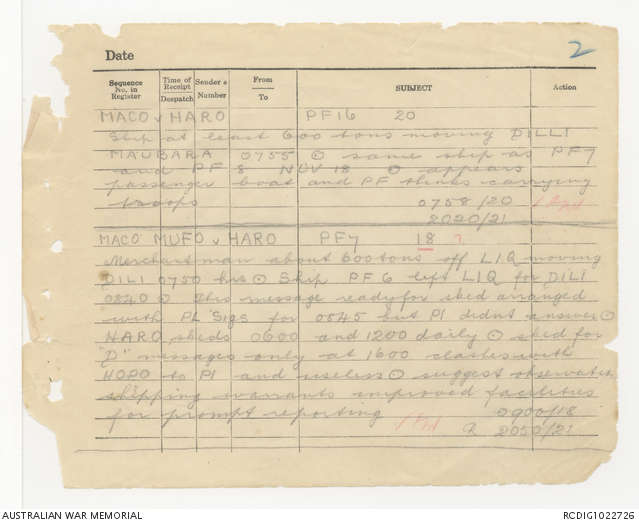 Date
2
Sequence No. in Register
Time of Receipt Despatch
Sender's Number
From To
SUBJECT
Action
MACO v HARO PF16 20
Ship at least 600 tons moving DILLI
MAUBARA 0755 ⊙ same ship as PF7
and PF 8 NOV 18 ⊙ appears
passenger boat and PF thinks carrying
troops 0758/20
2020/21
MACO MUFO v HARO PF7 18 ?
Merchantman about 600 tons off LIQ moving
DILI 0750 hrs ⊙ Ship PF6 left LIQ for DILI
0840 ⊙ This message ready for sked arranged
with PL Sigs for 0845 but P1 didnt answer ⊙
HARO skeds 0600 and 1200 daily ⊙ sked for
"D" messages only at 1600 clashes with
HOPO to P1 and useless ⊙ suggest
shipping warrants improved facilities
for prompt reporting 0900/18
R 2050/21
AUSTRALIAN WAR MEMORIAL
RCDIG1022726